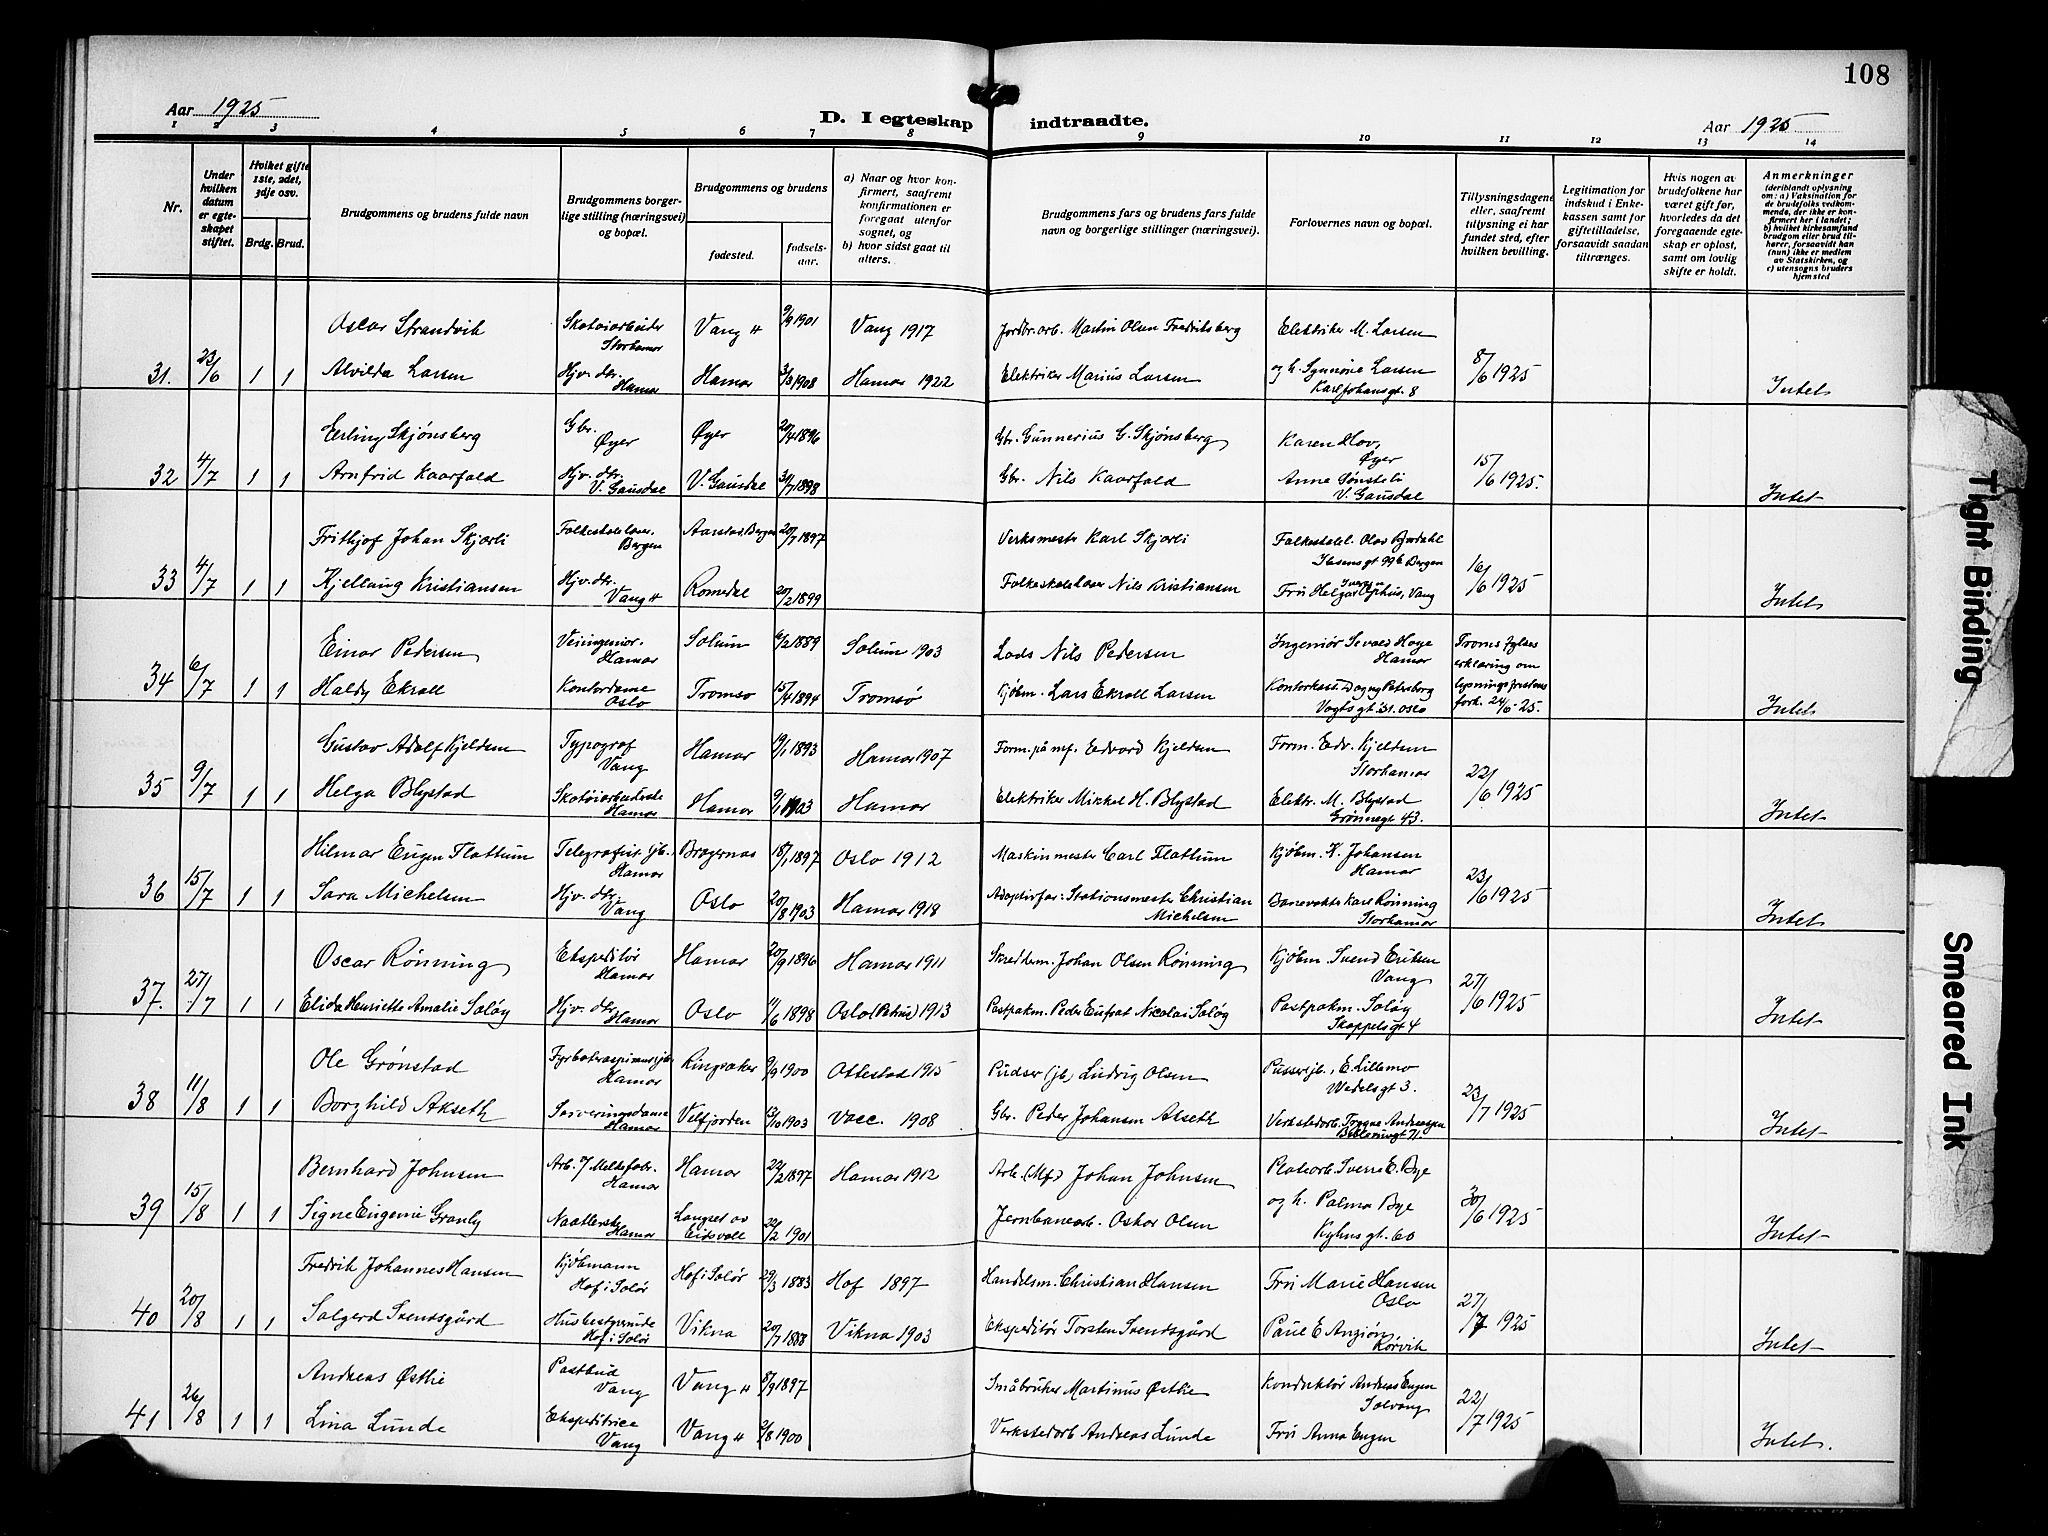 108
Aar 1925
D. I egteskap indtraadte.
Aar 1925
1 2 3 4 5 6 7 8 9 10 11 12 13 14
Nr.
Under hvilken datum er egteskapet stiftet.
Hvilket gifte 1ste, 2det, 3dje osv.
Brdg. Brud.
Brudgommens og brudens fulde navn
Brudgommens borgerlige stilling (næringsvei) og bopæl.
Brudgommens og brudens
fødested.
fødselsaar.
a) Naar og hvor konfirmert, saafremt konfirmationen er foregaat utenfor sognet, og
b) hvor sidst gaat til alters.
Brudgommens fars og brudens fars fulde navn og borgerlige stillinger (næringsvei).
Forlovernes navn og bopæl.
Tillysningsdagene eller, saafremt tillysning ei har fundet sted, efter hvilken bevilling.
Legitimation for indskud i Enkekassen samt for giftetilladelse, forsaavidt saadan tiltrænges.
Hvis nogen av brudefolkene har været gift før, hvorledes da det foregaaende egteskap er opløst, samt om lovlig skifte er holdt.
Anmerkninger
(deriblandt oplysning om: a) Vaksination for de brudefolks vedkommende, der ikke er konfirmert her i landet;
b) hvilket kirkesamfund brudgom eller brud tilhører, forsaavidt han (hun) ikke er medlem av Statskirken, og
c) utensogns bruders hjemsted
Oscar Strandvik Skotøiarbeider Storhamar Vang H 9/9 1901 Vang 1917 Jordbr.arb. Martin Olsen Fredriksberg Elektriker M. Larsen
31. 23/6 1 1 Alvilda Larsen Hjv. dtr. Hamar Hamar 3/3 1908 Hamar 1922 Elektriker Marius Larsen og h. Synnøve Larsen Karl Johansgt. 8 8/6 1925 Intet
Erling Skjønsberg Gbr. Øyer Øyer 20/4 1896 Gbr. Gunnerius G. Skjønsberg Karen Hov, Øyer
32 4/7 1 1 Arnfrid Kaarfald Hjv. dtr. V. Gausdal V. Gausdal 31/7 1898 Gbr. Nils Kaarfald Anna Sønsteli V. Gausdal 15/6 1925. Intet
Frithjof Johan Skjørli Folkeskolelærer Bergen Aarstad, Bergen 20/7 1897 Verksmester Karl Skjørli Folkeskolel. Olav Bjørdahl Ibsensgt 99b Bergen
33 4/7 1 1 Kjellaug Kristiansen Hjv. dtr. Vang H Romedal 20/2 1899 Folkeskolelærer Nils Kristiansen Fru Helga Iversen Ophus, Vang 16/6 1925 Intet
Einar Pedersen Veiingeniør. Hamar Solum 6/2 1889 Solum 1903 Lods Nils Pedersen Ingeniør Sevald Hoye Hamar Troms fylkes erklæring om
34 6/7 1 1 Haldy Ekroll Kontordame Oslo Tromsø 15/4 1894 Tromsø Kjøbm. Lars Ekroll Larsen Kontorkass. Dagny Petersborg Vogtsgt. 31. Oslo lysningsfristens fork. 24/6-25. Intet
Gustav Adolf Kjeldsen Typograf Vang Hamar 19/1 1893 Hamar 1907 Form. på mf. Edvard Kjeldsen Form. Edv. Kjeldsen Storhamar
35 9/7 1 1 Helga Blystad Skotøiarbeiderske Hamar Hamar 9/1 1903 Hamar Elektriker Mikkel H. Blystad Elektr. M. Blystad Grønnegt 43. 22/6 1925 Intet
Hilmar Eugen Flattum Telegrafist jb. Hamar Bragernes 18/1 1897 Oslo 1912 Maskinmester Carl Flattum Kjøbm. K. Johansen Hamar
36 15/7 1 1 Sara Michelsen Hjv. dtr. Vang Oslo 20/8 1903 Hamar 1918 Adoptivfar: Stationsmester Christian Michelsen Banevokter Karl Rønning Storhamar 23/6 1925 Intet
Oscar Rønning Ekspeditør Hamar Hamar 20/9 1896 Hamar 1911 Skredderm. Johan Olsen Rønning Kjøbm. Svend Eriksen Vang
37. 27/7 1 1 Elida Henriette Amalie Soløy Hjv. dtr. Hamar Oslo 11/6 1898 Oslo (Petrus) 1913 Postpakm. Peder Eufrat Nicolai Soløy Postpakm. Soløy Skappelsgt 4 27/6 1925 Intet
Ole Grønstad Fyrbøteraspirant jb. Hamar Ringsaker 9/9 1900 Ottestad 1915 Pudser (jb) Ludvig Olsen Pusser jb., E. Lillemo Wedelsgt 3.
38 11/8 1 1 Borghild Akseth Serveringsdame Hamar Velfjorden 13/10 1903 Vacc. 1908 Gbr. Peder Johansen Akseth Verkstedarb. Trygve Andreassen 23/7 1925 Intet
Bernhard Johnsen Arb. v/ Melkefabr. Hamar Hamar 22/2 1897 Hamar 1912 Arb. (Mf.) Johan Johnsen Platearb. Sverre E. Bye
39 15/8 1 1 Signe Eugenie Granly Naatlerske Hamar Langset av Eidsvoll 22/2 1901 Jernbanearb. Oskar Olsen og h. Palma Bye Kyhnsgt. 60 30/6 1925 Intet
Fredrik Johannes Hansen Kjøbmann Hof i Solør Hof i Solør 29/3 1883 Hof 1897 Handelsm. Christian Hansen Fru Marie Hansen Oslo
40 20/8 1 1 Solgerd Svendsgård Husbestyrerinde Hof i Solør Vikna 20/7 1888 Vikna 1903 Ekspeditør Torsten Svendsgård Paul E Anzjøn Rørvik 27/7 1925 Intet
Andreas Østlie Postbud Vang Vang H 8/9 1897 Småbruker Martinus Østlie Konduktør Andreas Engen Solvang
41 26/8 1 1 Lina Lunde Ekspeditrice Vang Vang H 2/8 1900 Verkstedarb Andreas Lunde Fru Anna Engen 22/7 1925 Intet.
Tight Binding
Smeared Ink